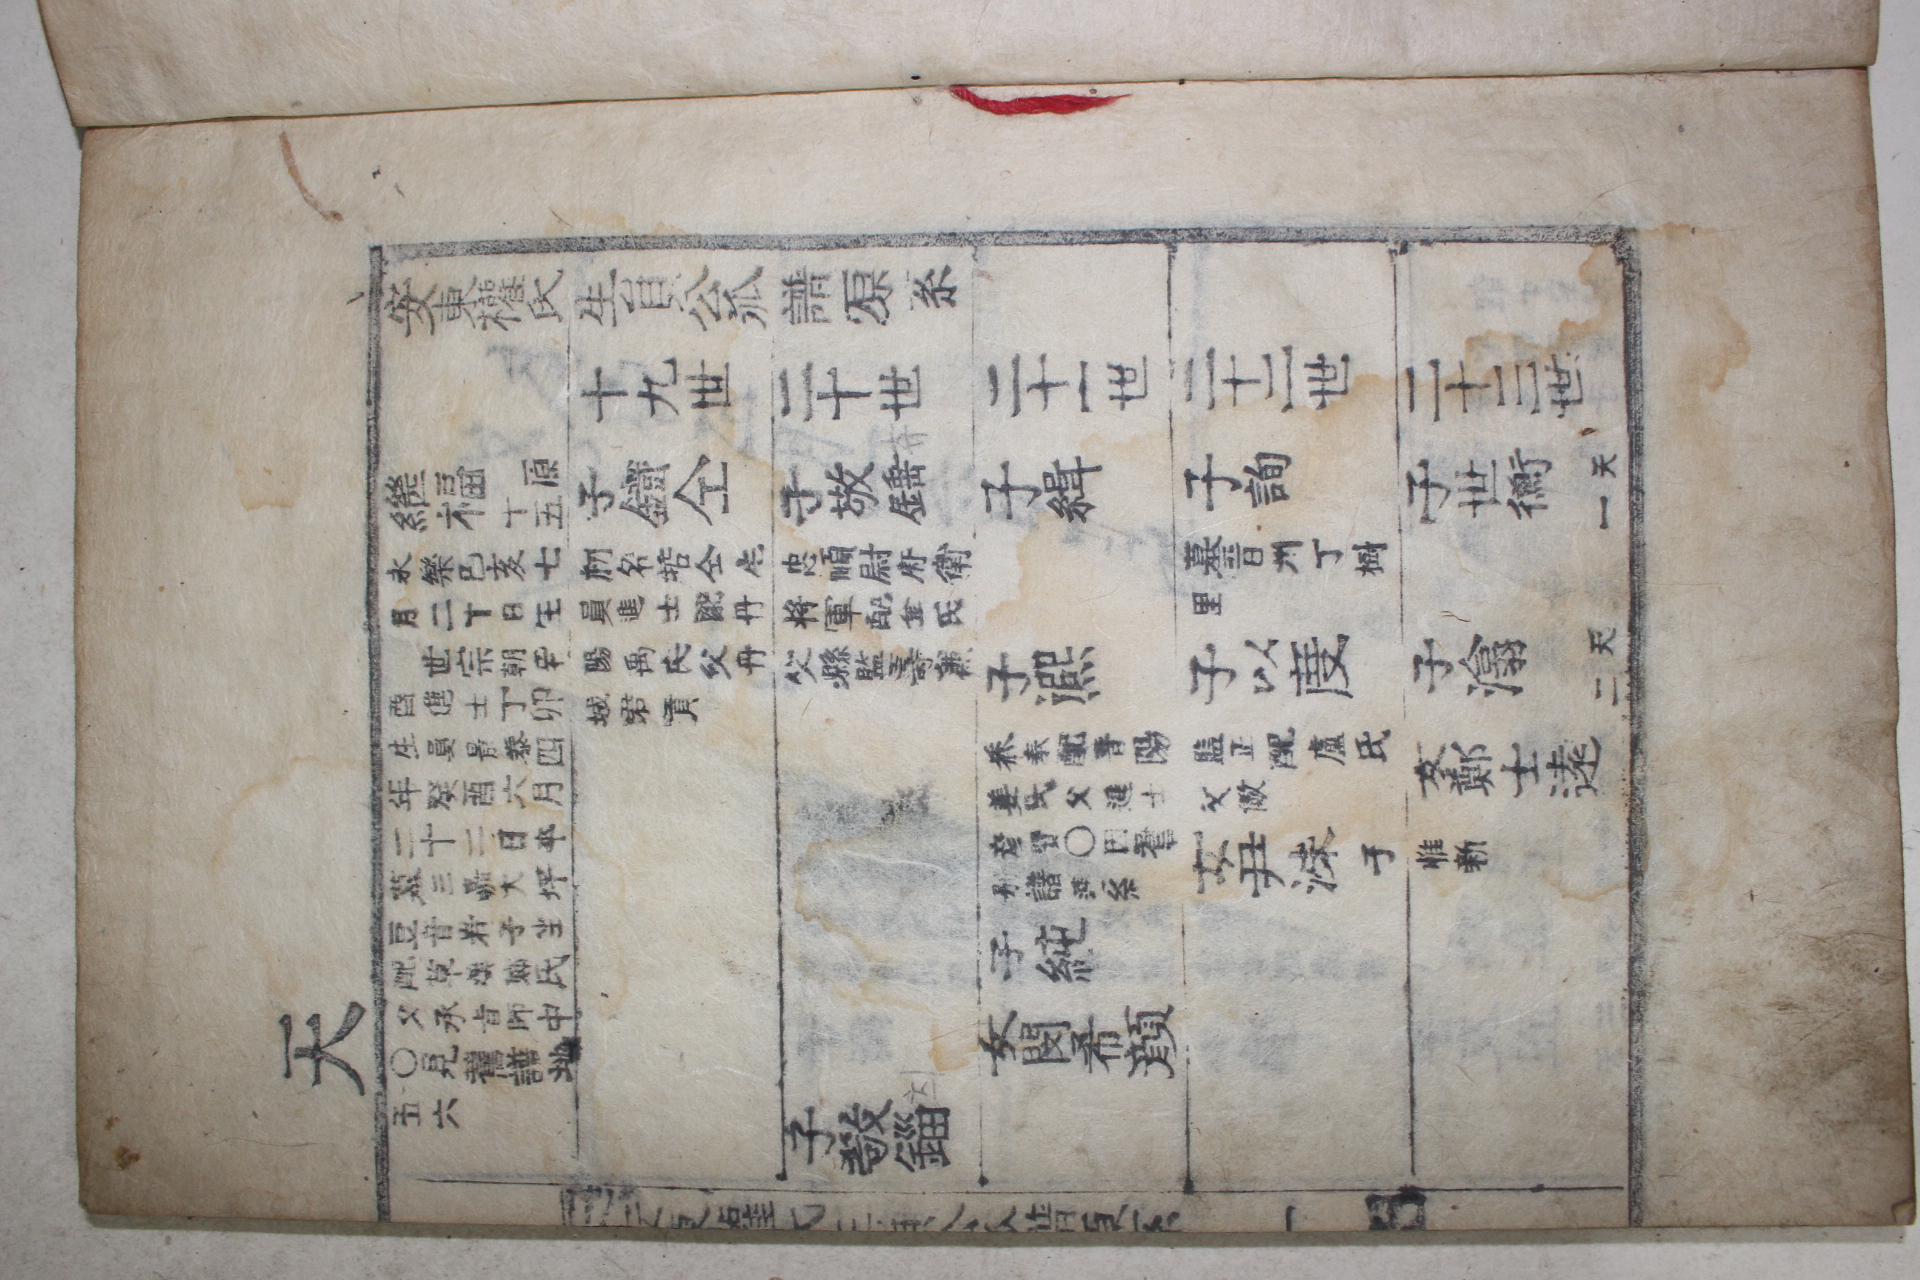 天
安東權氏生員公派譜源系
繼福
十五
原
永樂己亥七
月二十日生
世宗朝辛
酉進士丁卯
生員景泰四
年癸酉六月
二十二日卒
墓三嘉大坪
豆音岩子坐
配草溪鄭氏
父承旨師中
○見舊譜地
五六
十九世
子鐵仝
初名哲仝生
員進士配丹
陽禹氏父丹
城君貢
二十世
子敬錘
忠順尉府衛
將軍配金氏
父縣監壽
子敬錙
二十一世
子緝
子遲
參奉配晉陽
姜氏父進士
彦賢○因舊
譜系
子純
女閔希顔
二十二世
子詢
墓晋州丁樹
里
子以度
監正配盧氏
父
女尹洙
子
惟新
二十三世
子世衡
天
一
子滃
天
二
女鄭士遠
安東權氏生員公派譜源系
一